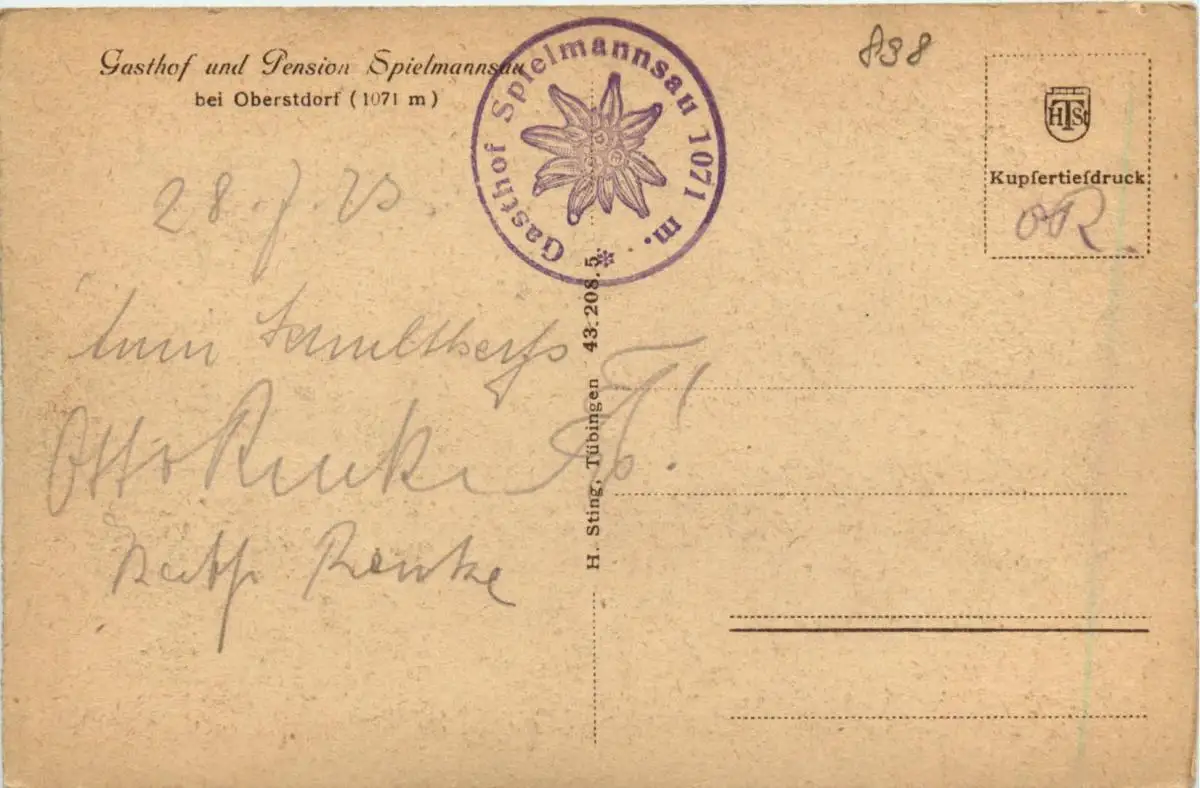 Gasthof und Pension Spielmannsau
bei Oberstdorf (1071 m)
Gasthof Spielmannsau 1071 m. *
898
HTSt
Kupfertiefdruck
OR
28.7.
Otto Renke
Renke
H. Sting, Tübingen 43.208.5.